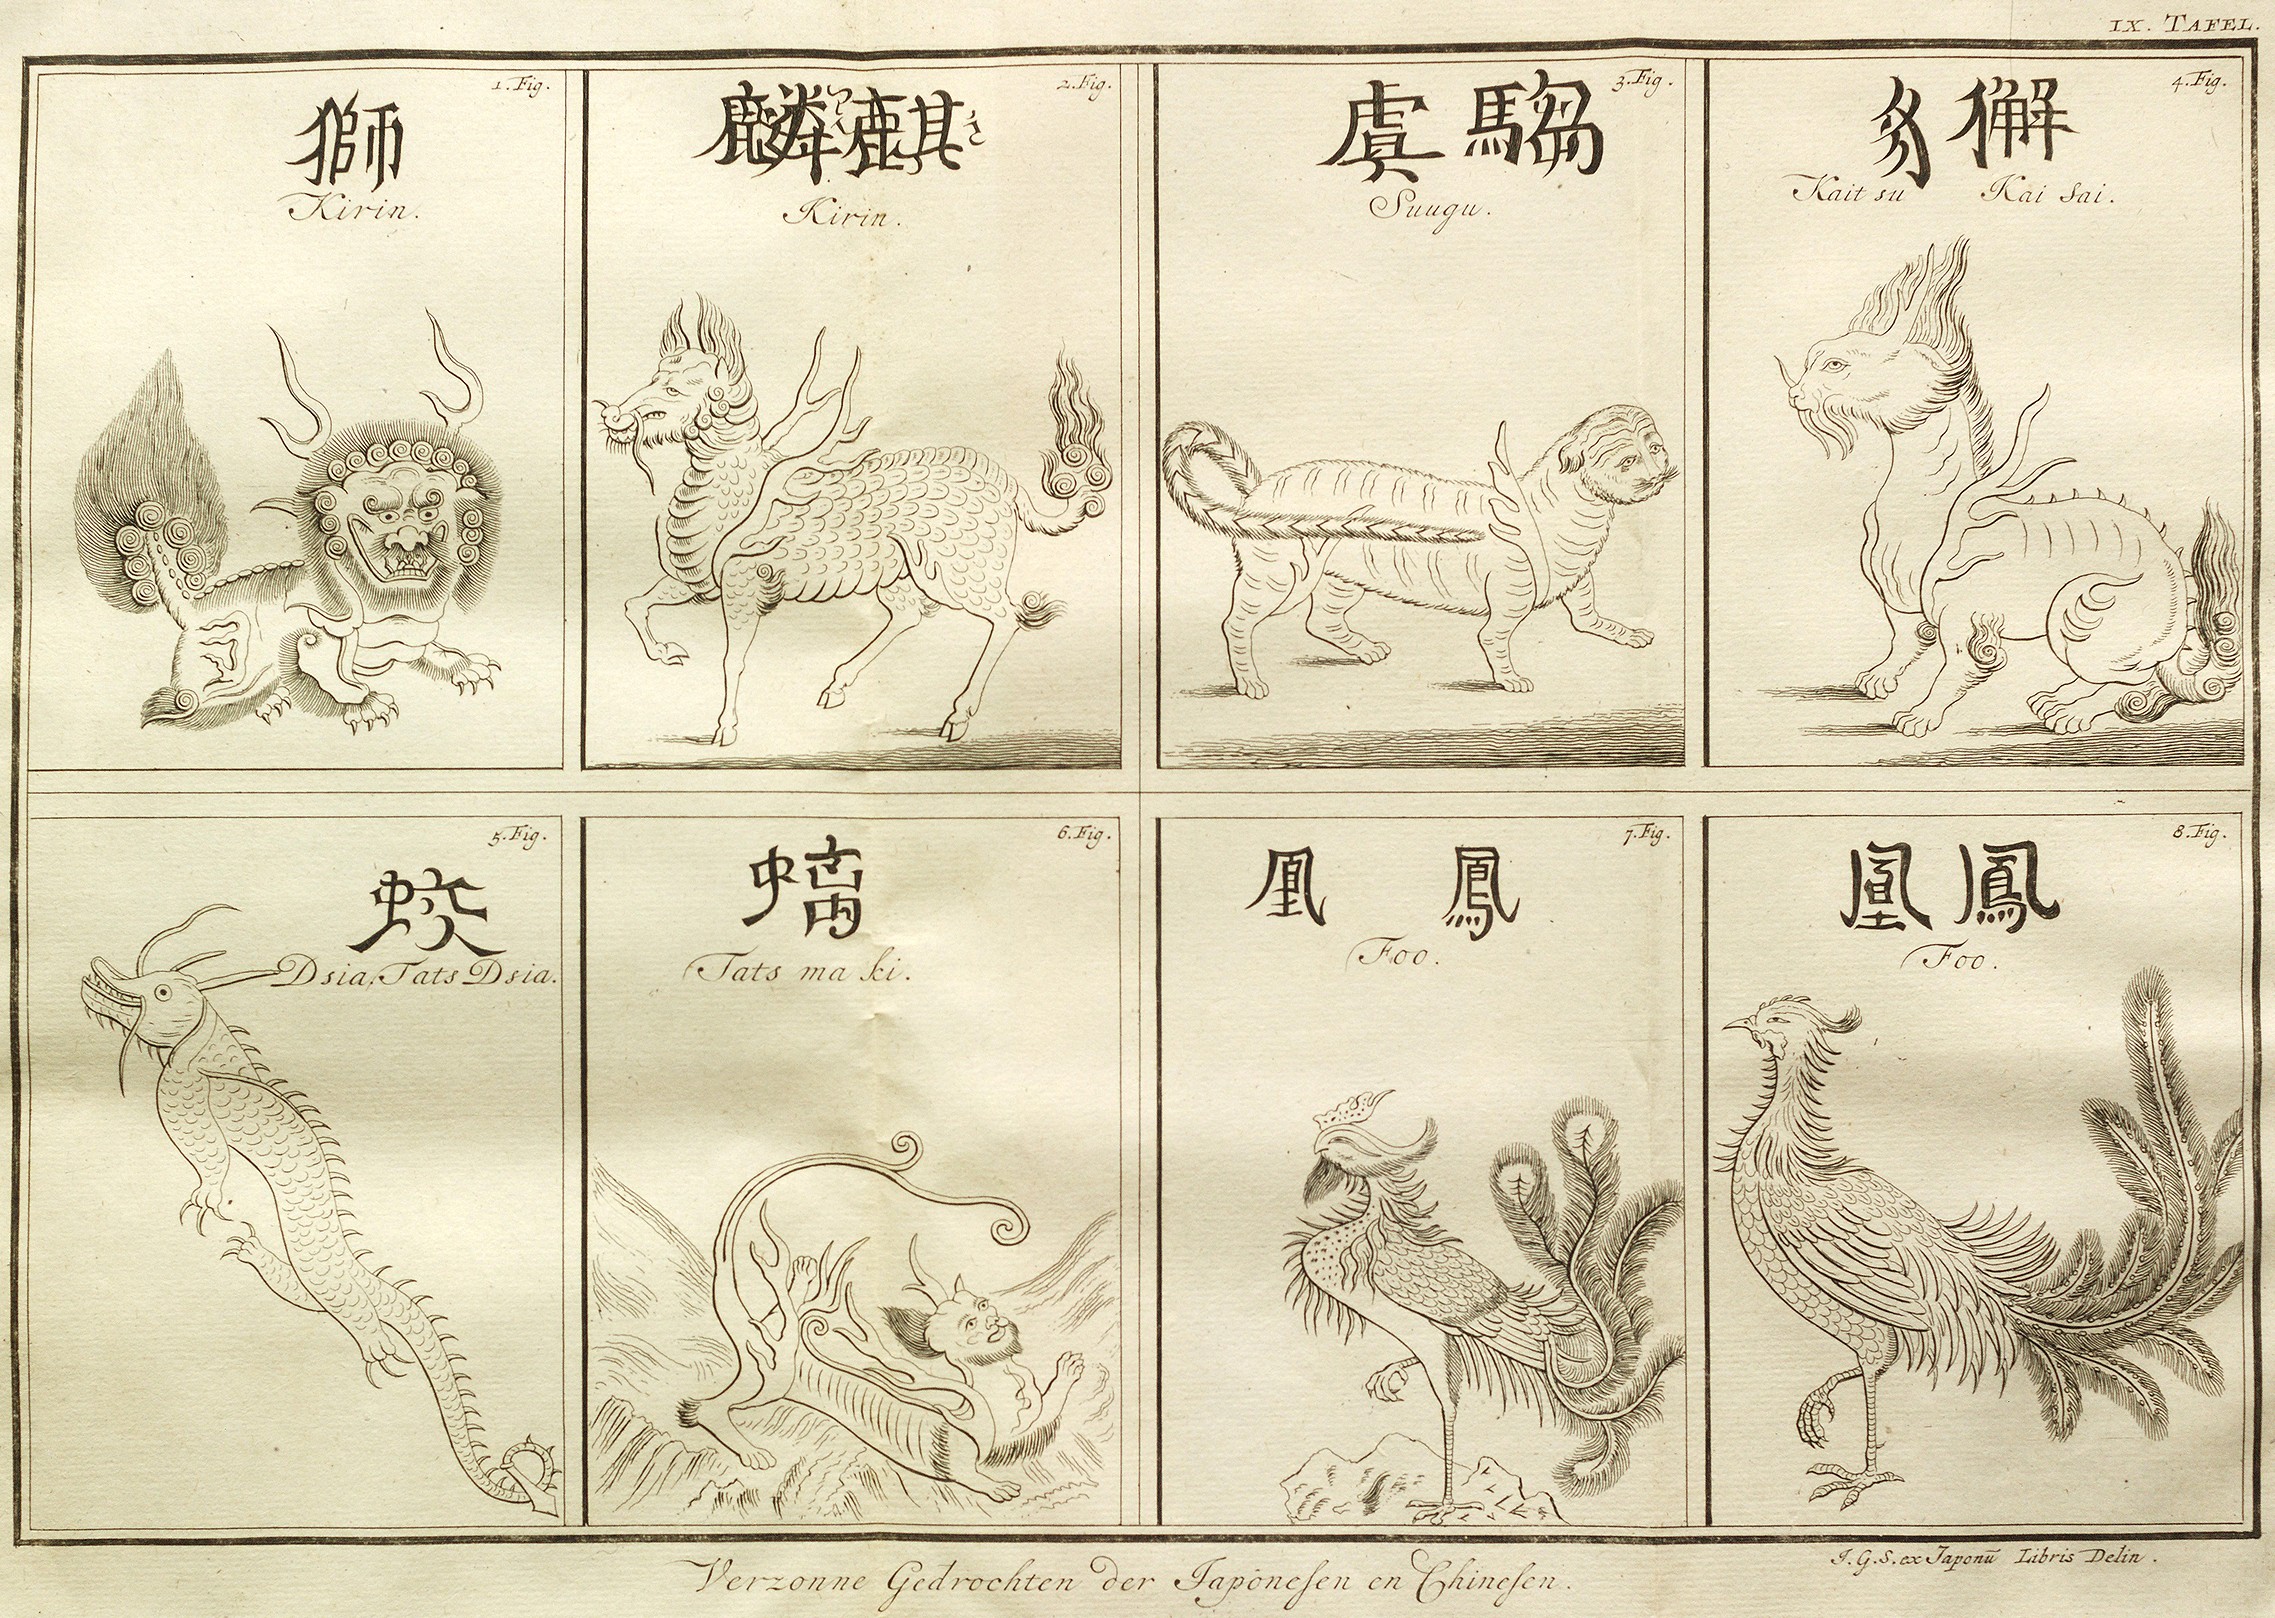 IX. TAFEL.
1. Fig.
獅
Kirin.
2. Fig.
麟麒
Kirin.
3. Fig.
虞騶
Suugu.
4. Fig.
豸獬
Kait su Kai sai.
5. Fig.
蛟
Dsia, Tats Dsia.
6. Fig.
螭
Tats ma ki.
7. Fig.
凰鳳
Foo.
8. Fig.
凰鳳
Foo.
I. G. S. ex Japonū Libris Delin.
Verzonne Gedrochten der Japönesen en Chinesen.